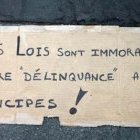 S LOIS SONT IMMORA
RE "DÉLINQUANCE" A
NCIPES !